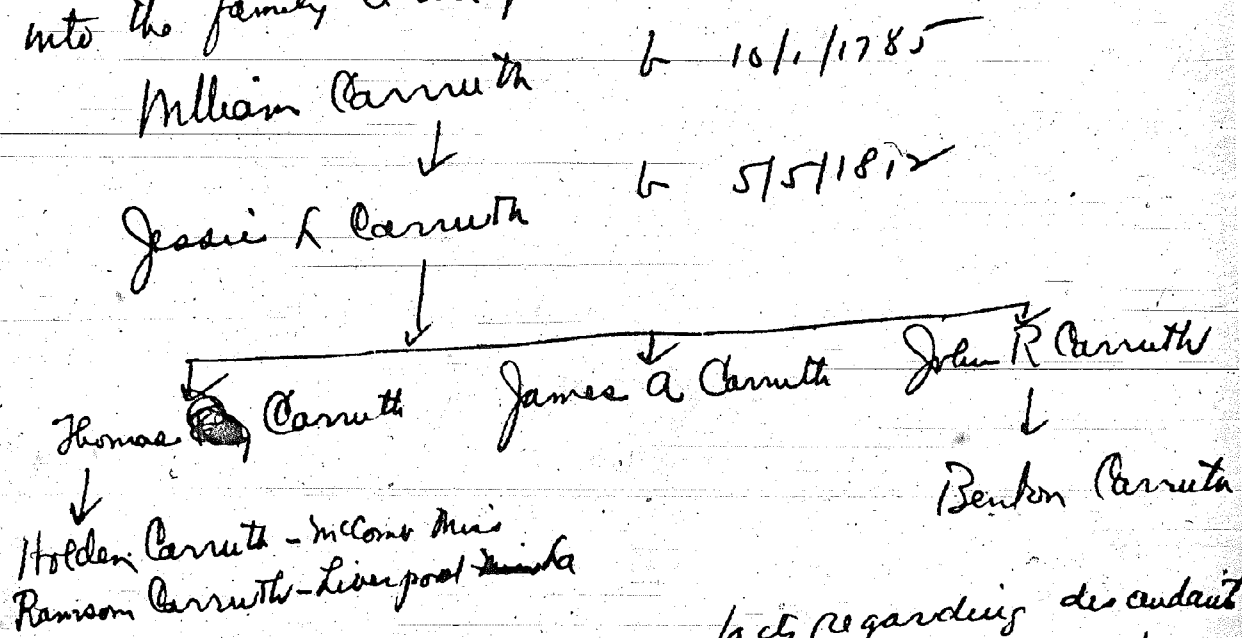 into the family
William Carruth b 10/1/1785
Jessie L Carruth b 5/5/1812
Thomas Carruth James A Carruth John R Carruth
Benton Carruth
Holden Carruth - McComb Miss
Ransom Carruth - Liverpool La
facts regarding descendant